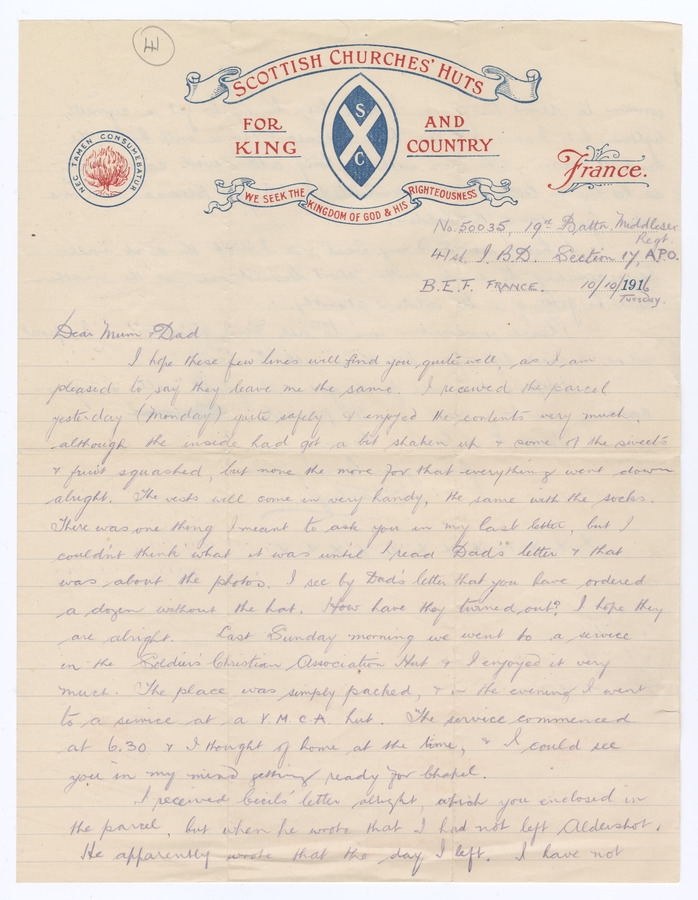 SCOTTISH CHURCHES' HUTS
FOR KING
AND COUNTRY
S C
NEC TAMEN CONSUMEBATUR
France.
WE SEEK THE KINGDOM OF GOD & HIS RIGHTEOUSNESS
No. 50035, 19th Battn. Middlesex Regt.
41st. I.B.D. Section 17, A.P.O.
B.E.F. FRANCE. 10/10/1916
TUESDAY.
Dear Mum & Dad
I hope these few lines will find you quite well, as I am
pleased to say they leave me the same. I received the parcel
yesterday (Monday) quite safely, & enjoyed the contents very much,
although the inside had got a bit shaken up & some of the sweets
& fruit squashed, but none the more for that everything went down
alright. The vests will come in very handy, the same with the socks.
There was one thing I meant to ask you in my last letter, but I
couldn't think what it was until I read Dad's letter & that
was about the photos. I see by Dad's letter that you have ordered
a dozen without the hat. How have they turned out? I hope they
are alright. Last Sunday morning we went to a service
in the Soldiers Christian Association Hut & I enjoyed it very
much. The place was simply packed, & in the evening I went
to a service at a Y.M.C.A hut. The service commenced
at 6.30 & I thought of home at the time, & I could see
you in my mind getting ready for Chapel.
I received Cecil's letter alright, which you enclosed in
the parcel, but when he wrote that I had not left Aldershot.
He apparently wrote that the day I left. I have not